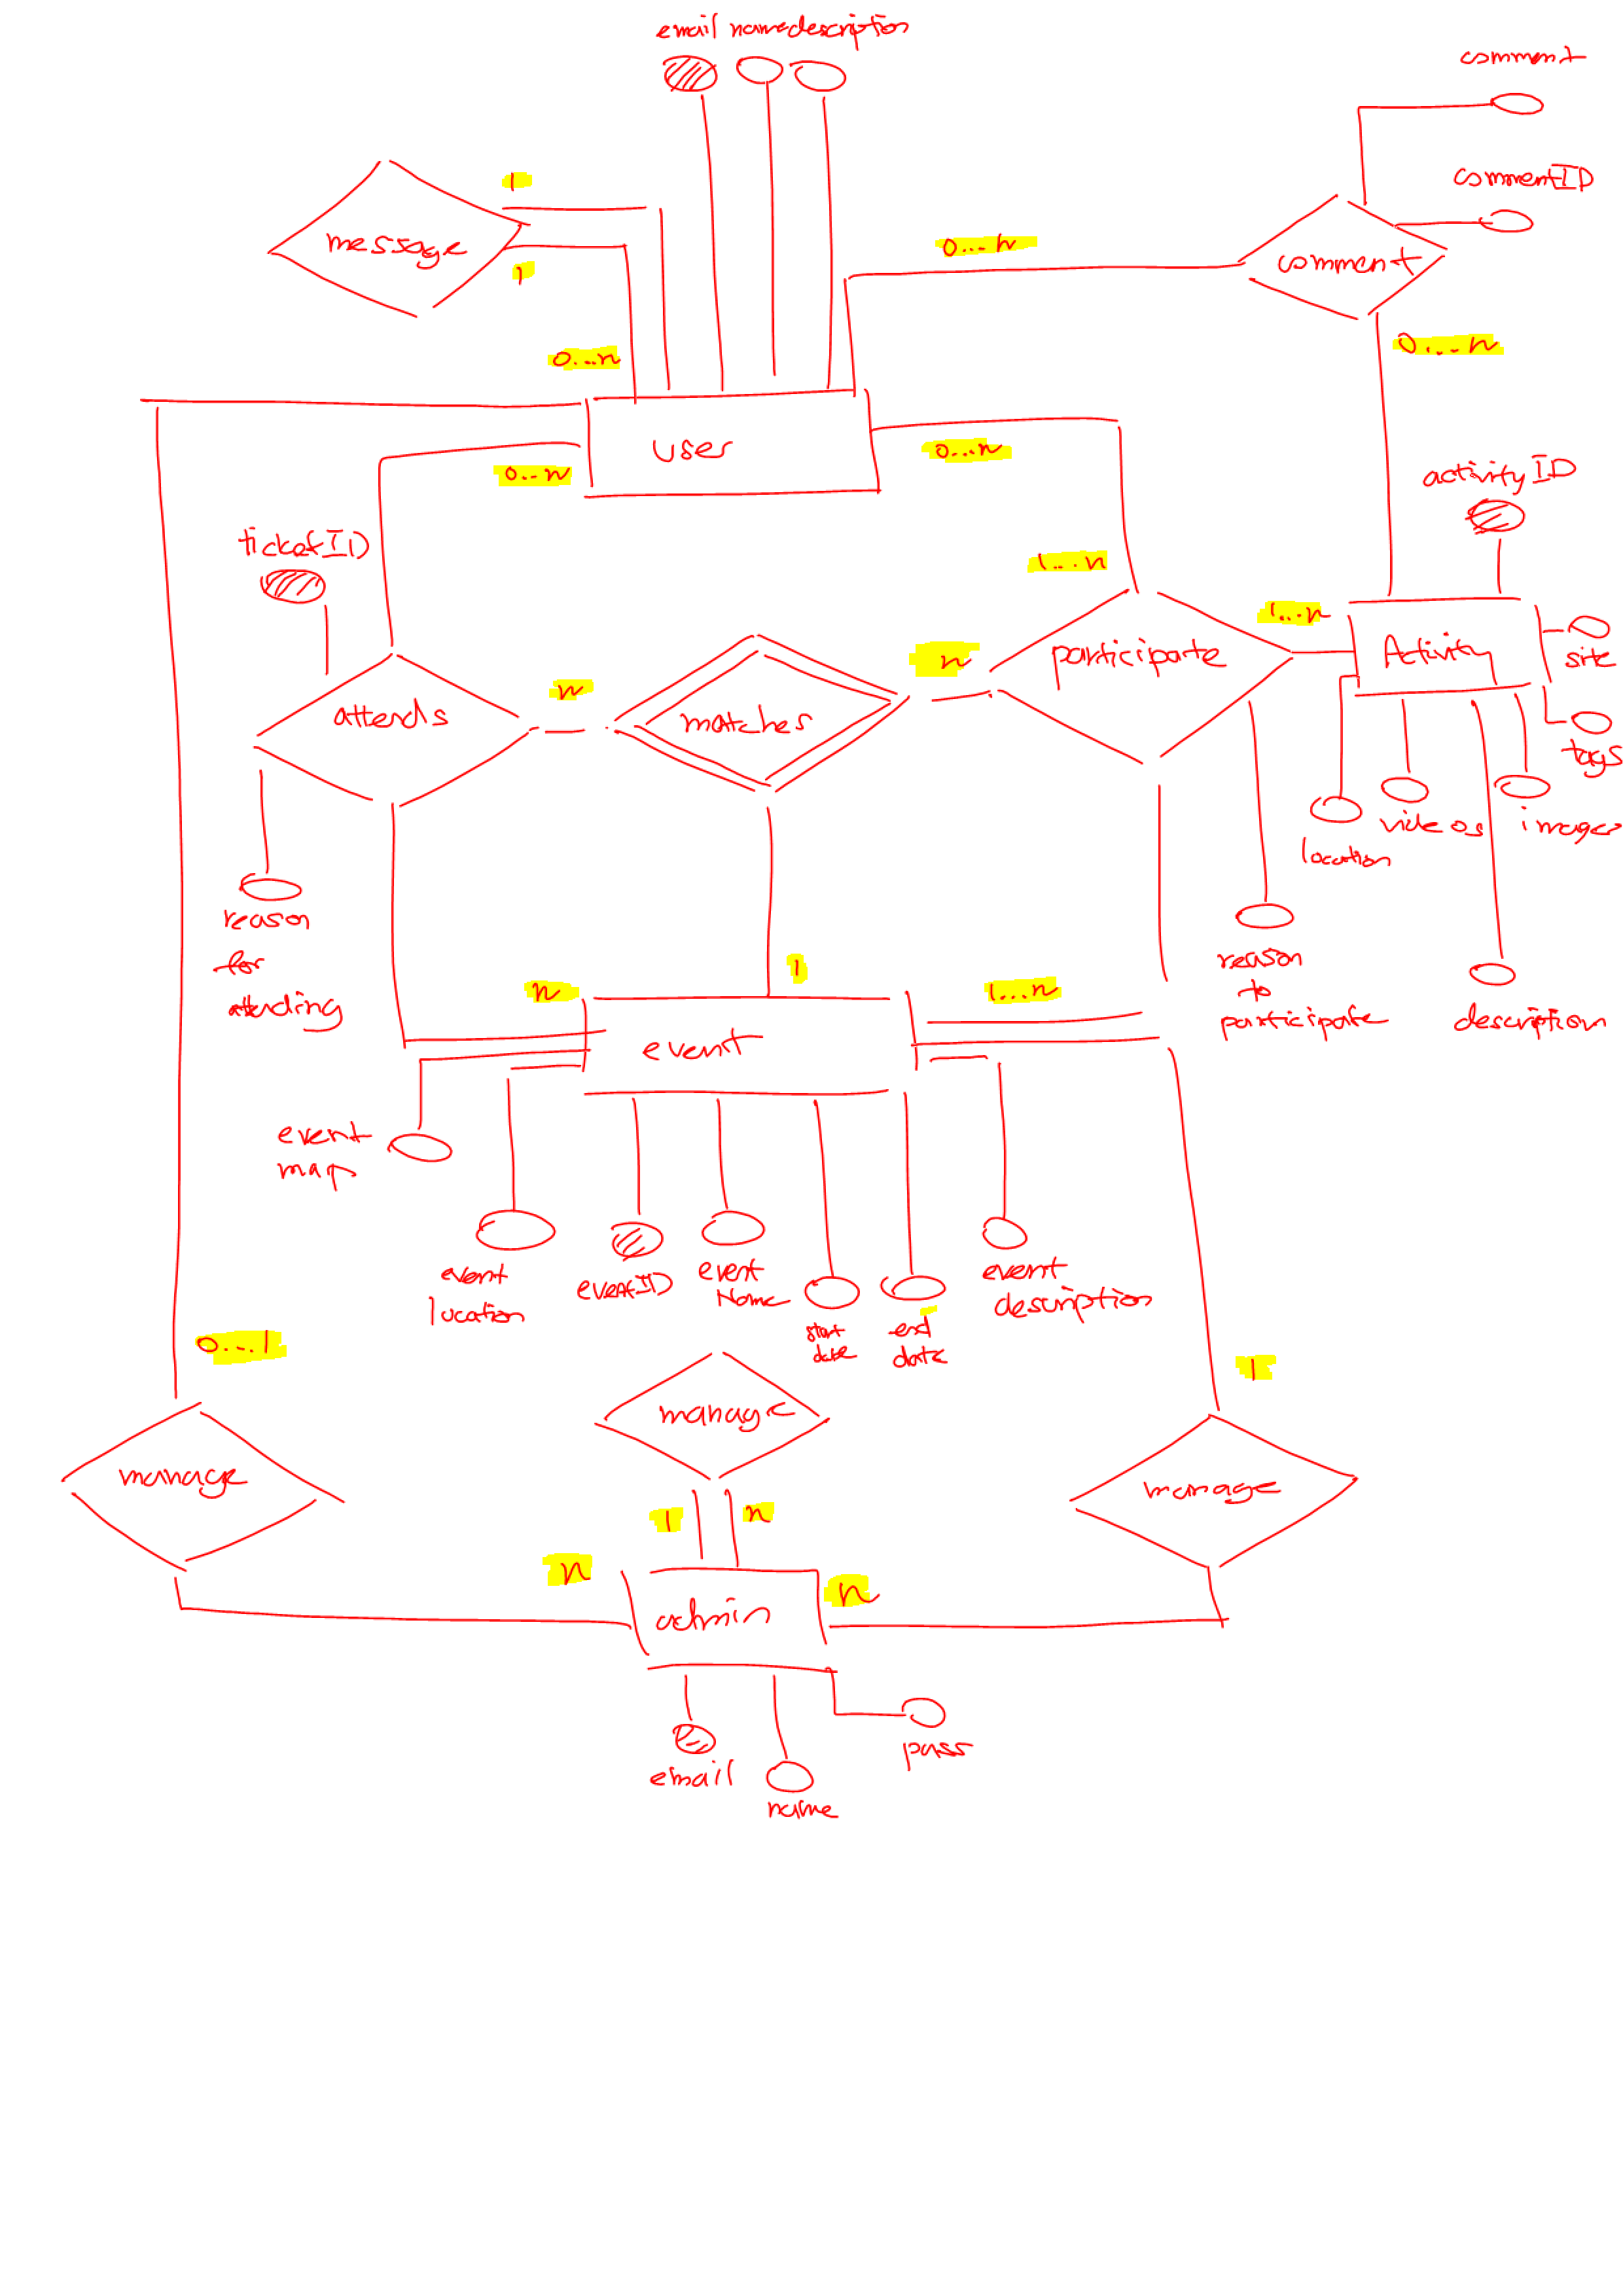 email name description
comment
commentID
1
message
0...n
comment
1
0...n
0...n
user
0...n
0...n
activityID
ticketID
1...n
1...n
n
n
participate
Activity
site
attends
matches
tags
videos
images
location
reason
for
attending
reason
to
participate
description
1
n
1...n
event
event
map
event
location
eventID
event
Name
start
date
end
date
event
description
0...1
1
manage
manage
manage
1
n
n
n
admin
email
name
pass